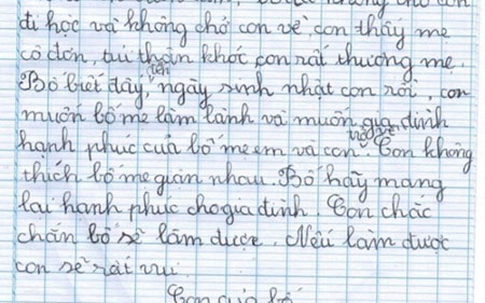 đi học và không chở con về, con thấy mẹ
cô đơn, tủi thân khóc con rất thương mẹ.
Bố biết đây, đến ngày sinh nhật con rồi, con
muốn bố mẹ làm lành và muốn gia đình
hạnh phúc của bố mẹ em và con trở về. Con không
thích bố mẹ giận nhau. Bố hãy mang
lại hạnh phúc cho gia đình. Con chắc
chắn bố sẽ làm được. Nếu làm được
con sẽ rất vui.
Con của bố